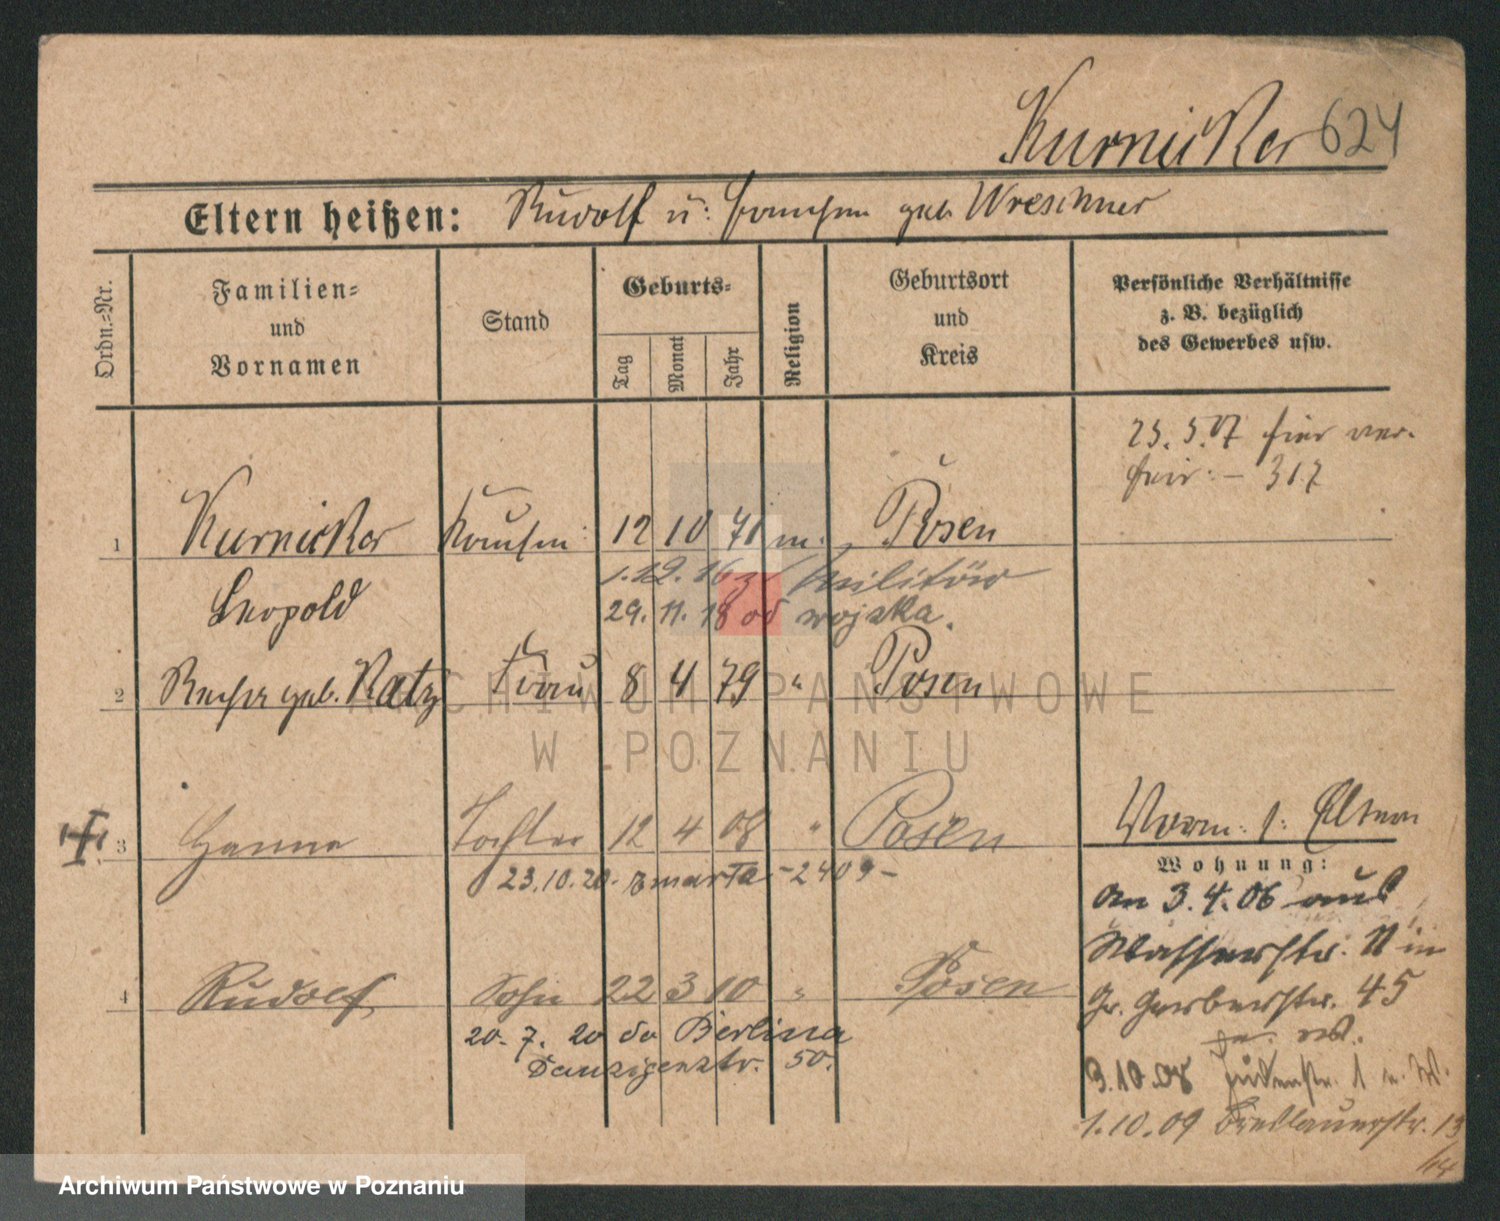 Kurnicker 624
Eltern heißen: Rudolf u: geb. Wreschner
Ordn.-Nr.
Familien- und Vornamen
Stand
Geburts-
Tag
Monat
Jahr
Religion
Geburtsort und Kreis
Persönliche Verhältnisse z. B. bezüglich des Gewerbes usw.
23.5.07 hier ver-
heir: – 317
1 Kurnicker Kaufm: 12 10 71 m. Posen
Leopold
1.12.16 z Militär
29.11.18 od wojska.
2 geb. Katz Frau 8 4 79 " Posen
3 Hanna Tochter 12 4 08 " Posen
23.10.20. zmarła -2409-
4 Rudolf Sohn 22 3 10 " Posen
20.7.20 do Berlina
Danzigerstr. 50.
Vorm: s: Eltern
Wohnung:
An 3.4.06 aus
Wasserstr. 11 in
Gr. Gerberstr. 45
3.10.08 Judenstr. 1 u. W.
1.10.09 Breslauerstr. 13
/14
ARCHIWUM PAŃSTWOWE
W POZNANIU
Archiwum Państwowe w Poznaniu